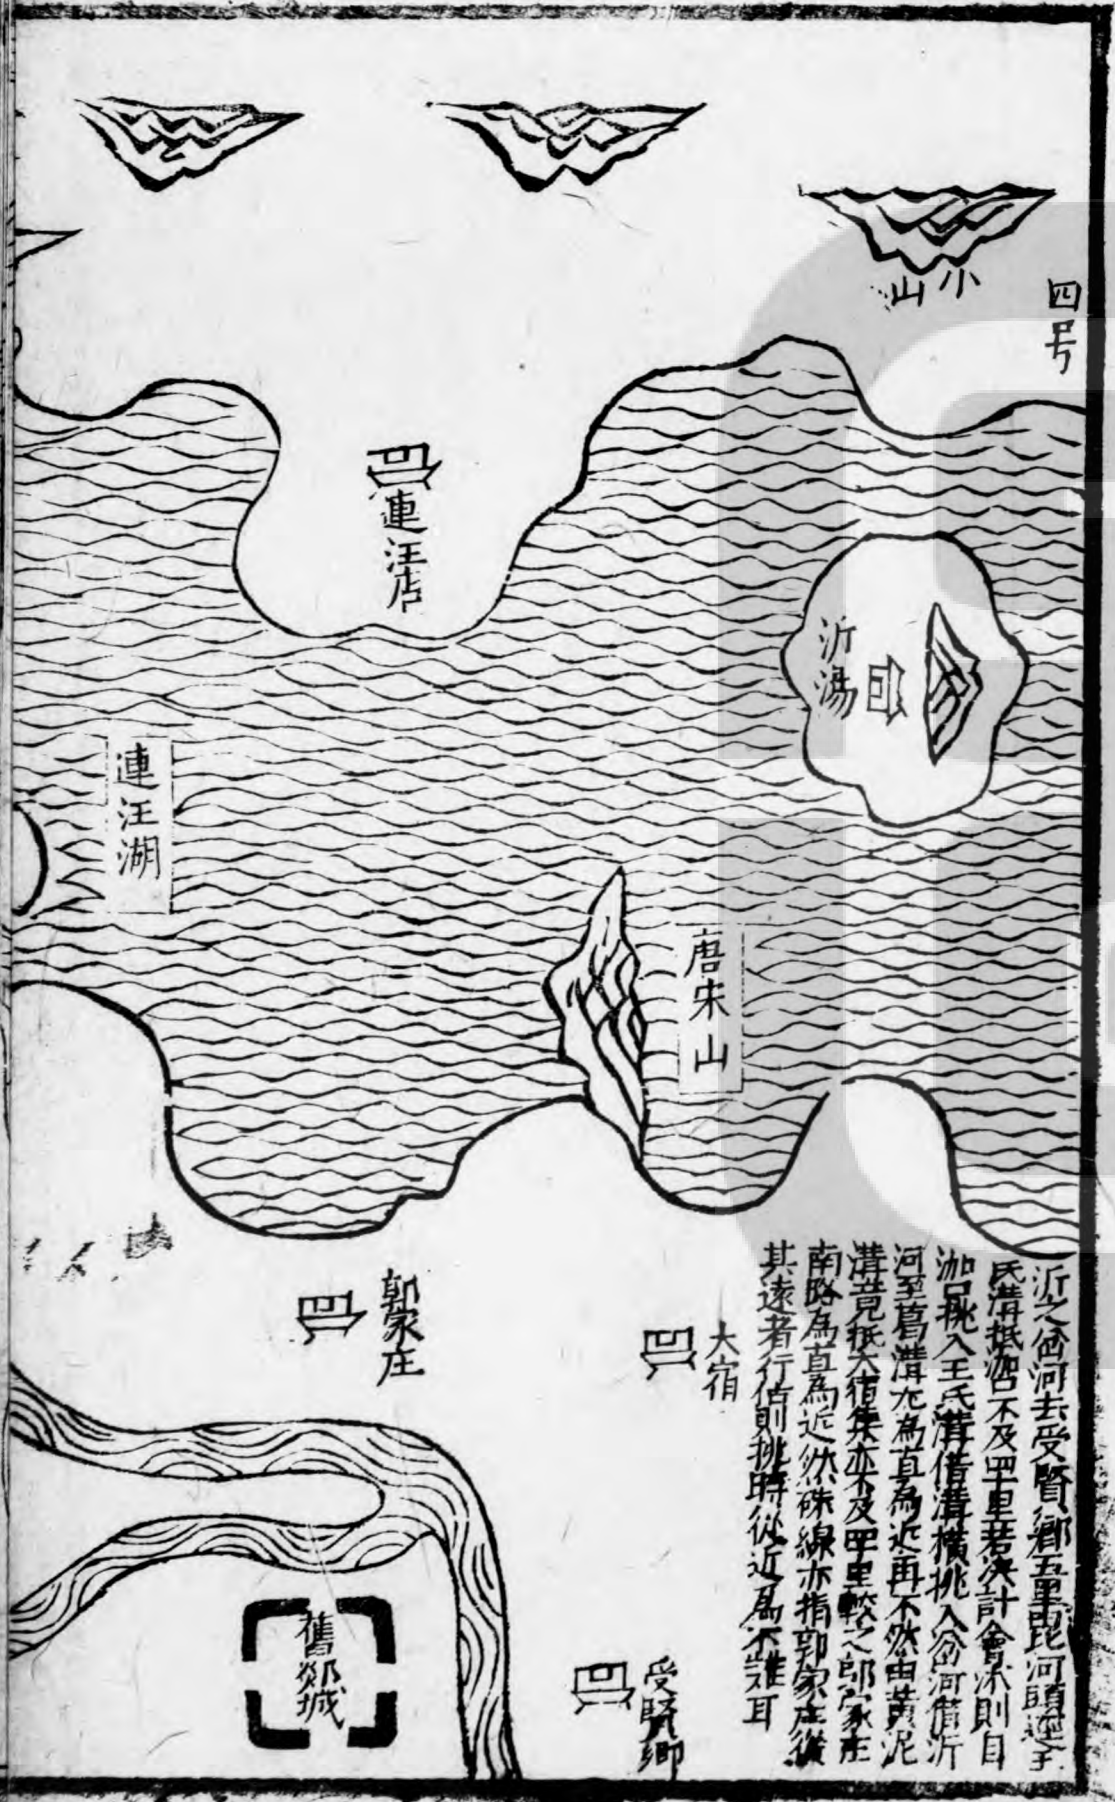 四号
小山
連汪店
沂湯
連汪湖
唐宋山
沂之㕣河去受賢鄉五里由此河頭逕
氏溝抵泇口不及四十里若決計會泇則自
泇口挑入王氏溝借溝橫挑入㕣河借沂
河至葛溝尤為直為近再不然由黃泥
溝竟抵大宿集亦不及四十里較之郭家庄
南路為直為近然硃線亦指郭家庄從
其遠者行佔則挑時從近為不難耳
大宿
郭家庄
舊郯城
受賢鄉